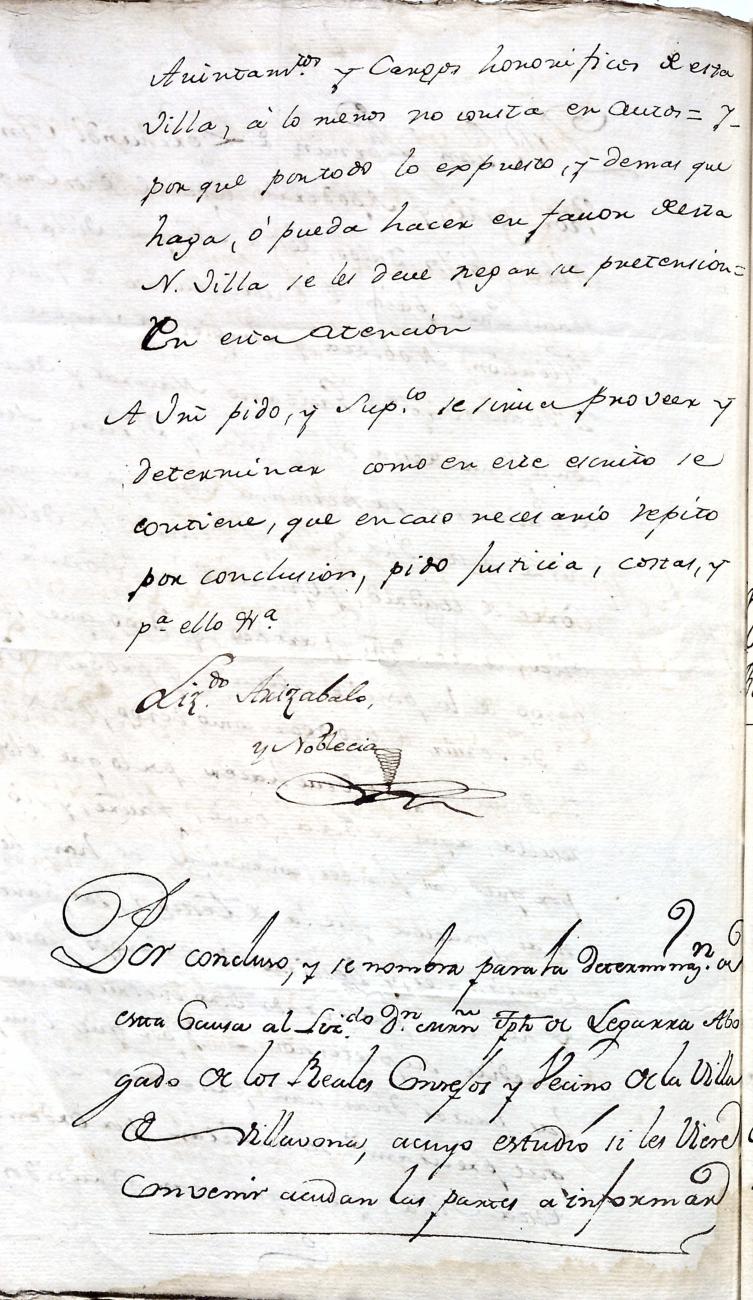 Aiuntam.tos y Cargos honorificos de esta
Villa, à lo menos no consta en autos = y
por que por todo lo expuesto, y demas que
haga, ó pueda hacer en fauor de esta
N. Villa se les deve negar su pretensión =
En esta atención
A Vm pido, y Sup.co se sirua proveer y
determinar como en este escrito se
contiene, que en caso necesario repito
por conclusión, pido Justicia, costas, y
p.a ello &.a
Liz.do Arizabalo,
y Noblecia
Por concluso, y se nombra para la determinaz.n de
esta Causa al Liz.do D.n Jph de Legarra Abo
gado de los Reales Consejos y Vecino de la Villa
de Villavona, acuyo estudio si les Viere
Convenir acudan las partes a informar